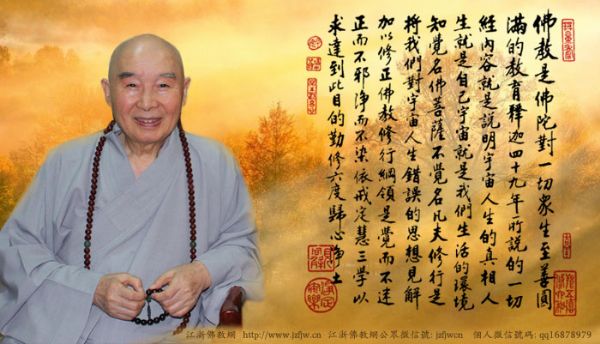 佛教是佛陀對一切衆生至善圓
滿的教育釋迦四十九年所說的一切
經內容就是說明宇宙人生的真相人
生就是自己宇宙就是我們生活的環境
知覺名佛菩薩不覺名凡夫修行是
將我們對宇宙人生錯誤的思想見解
加以修正佛教修行綱領是覺而不迷
正而不邪淨而不染依戒定慧三學以
求達到此目的勤修六度歸心淨土
江浙佛教網 http://www.jzfjw.cn 江浙佛教網公眾微信號: jzfjwcn 個人微信號碼: qq16878979